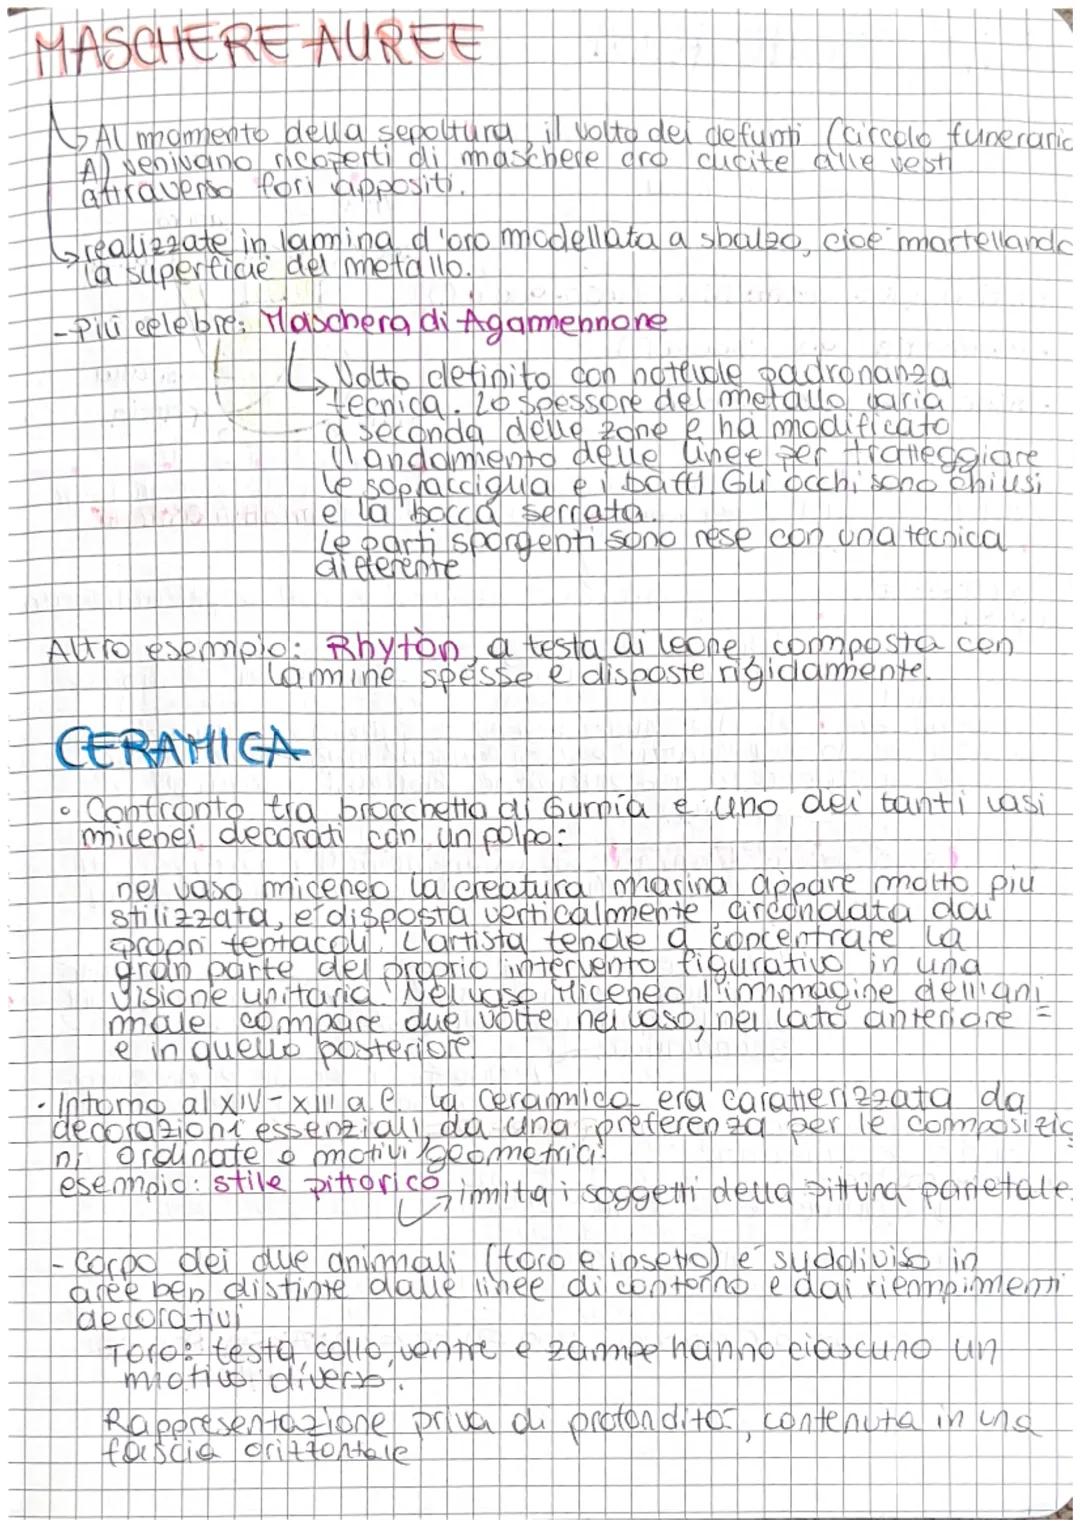 MASCHERE AUREE
Al momento della sepoltura, il volto dei defunti (circolo funerario
A) venivano ricoperti di maschere oro cucite alle vesti
attraverso fori appositi.
realizzate in lamina d'oro modellata a sbalzo, cioè martellando
la superficie del metallo.
- Più celebre: Maschera di Agamennone
Volto definito con notevole padronanza
tecnica. Lo spessore del metallo varia
a seconda delle zone e ha modificato
l'andamento delle linee per tratteggiare
le sopracciglia e i baffi. Gli occhi sono chiusi
e la bocca serrata.
Le parti sporgenti sono rese con una tecnica
differente
Altro esempio: Rhytòn, a testa di leone, composta con
lamine spesse e disposte rigidamente.
CERAMICA
• Confronto tra brocchetta di Gurnia e uno dei tanti vasi
micenei decorati con un polpo:
nel vaso miceneo la creatura marina appare molto più
stilizzata, è disposta verticalmente, circondata dai
propri tentacoli. L'artista tende a concentrare la
gran parte del proprio intervento figurativo in una
visione unitaria. Nel vaso Miceneo l'immagine dell'ani
male compare due volte nei vaso, nel lato anteriore =
e in quello posteriore.
• Intorno al XIV-XIII a.C. la ceramica era caratterizzata da
decorazioni essenziali, da una preferenza per le composizio
ni ordinate o motivi geometrici.
esempio: stile pittorico
imita i soggetti della pittura parietale.
- Corpo dei due animali (toro e insetto) è suddiviso in
aree ben distinte dalle linee di contorno e dai riempimenti
decorativi
Toro: testa, collo, ventre e zampe hanno ciascuno un
motivo diverso.
Rappresentazione priva di profondità, contenuta in una
fascia orizzontale